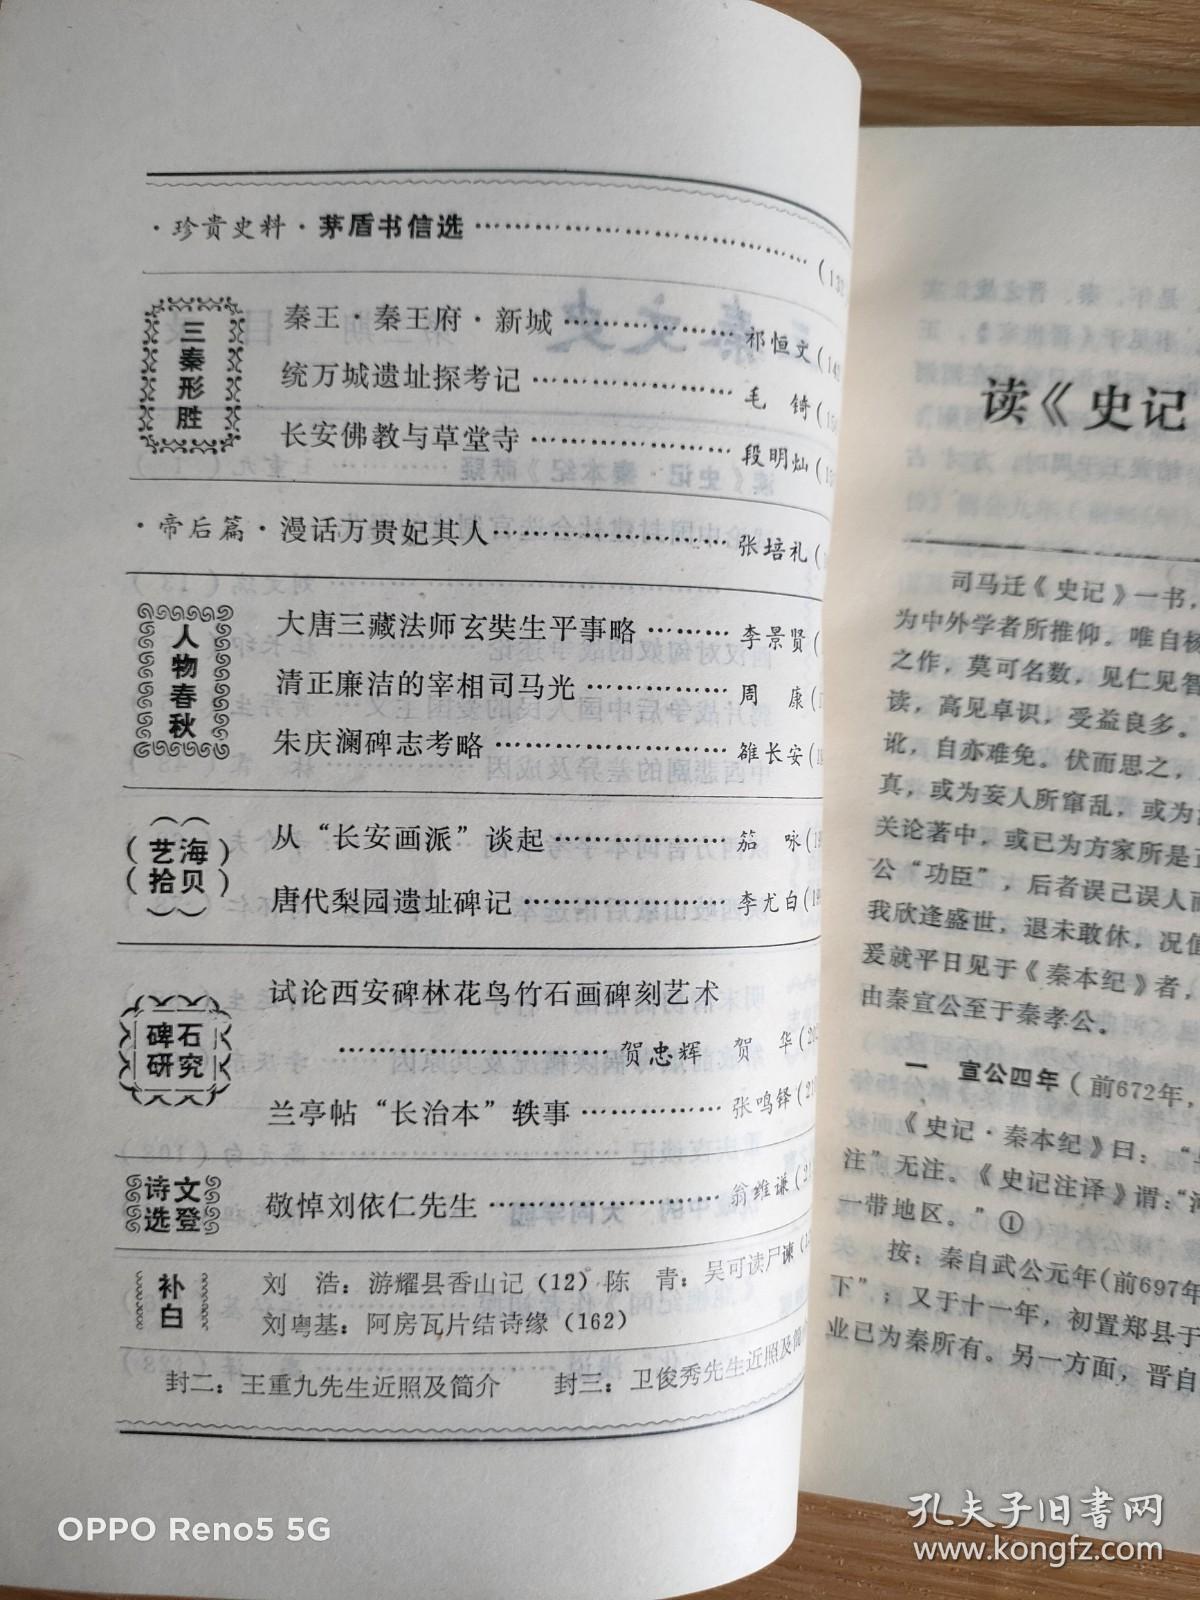 ·珍贵史料·茅盾书信选……………………………(132
三秦形胜
秦王·秦王府·新城………………祁恒文(14
统万城遗址探考记…………………毛　锜(1
长安佛教与草堂寺…………………段明灿(1
·帝后篇·漫话万贵妃其人……………………张培礼(
人物春秋
大唐三藏法师玄奘生平事略………李景贤(
清正廉洁的宰相司马光……………周　康(1
朱庆澜碑志考略……………………雒长安(1
艺海拾贝
从“长安画派”谈起………………笳　咏(19
唐代梨园遗址碑记…………………李尤白(19
碑石研究
试论西安碑林花鸟竹石画碑刻艺术
………………………贺忠辉　贺　华(20
兰亭帖“长治本”轶事……………张鸣铎(21
诗文选登
敬悼刘依仁先生……………………翁维谦(2
补白
刘　浩：游耀县香山记(12)　陈　青：吴可读尸谏(1
刘粤基：阿房瓦片结诗缘(162)
封二：王重九先生近照及简介　封三：卫俊秀先生近照及简介
读《史记
司马迁《史记》一书，
为中外学者所推仰。唯自杨
之作，莫可名数，见仁见智
读，高见卓识，受益良多。
讹，自亦难免。伏而思之，
真，或为妄人所窜乱，或为
关论著中，或已为方家所是正
公“功臣”，后者误己误人而
我欣逢盛世，退未敢休，况值
爰就平日见于《秦本纪》者，
由秦宣公至于秦孝公。
一　宣公四年(前672年，
《史记·秦本纪》曰：“
注”无注。《史记注译》谓：“河
一带地区。”①
按：秦自武公元年(前697年
下”；又于十一年，初置郑县于
业已为秦所有。另一方面，晋自
OPPO Reno5 5G
孔夫子旧书网
www.kongfz.com